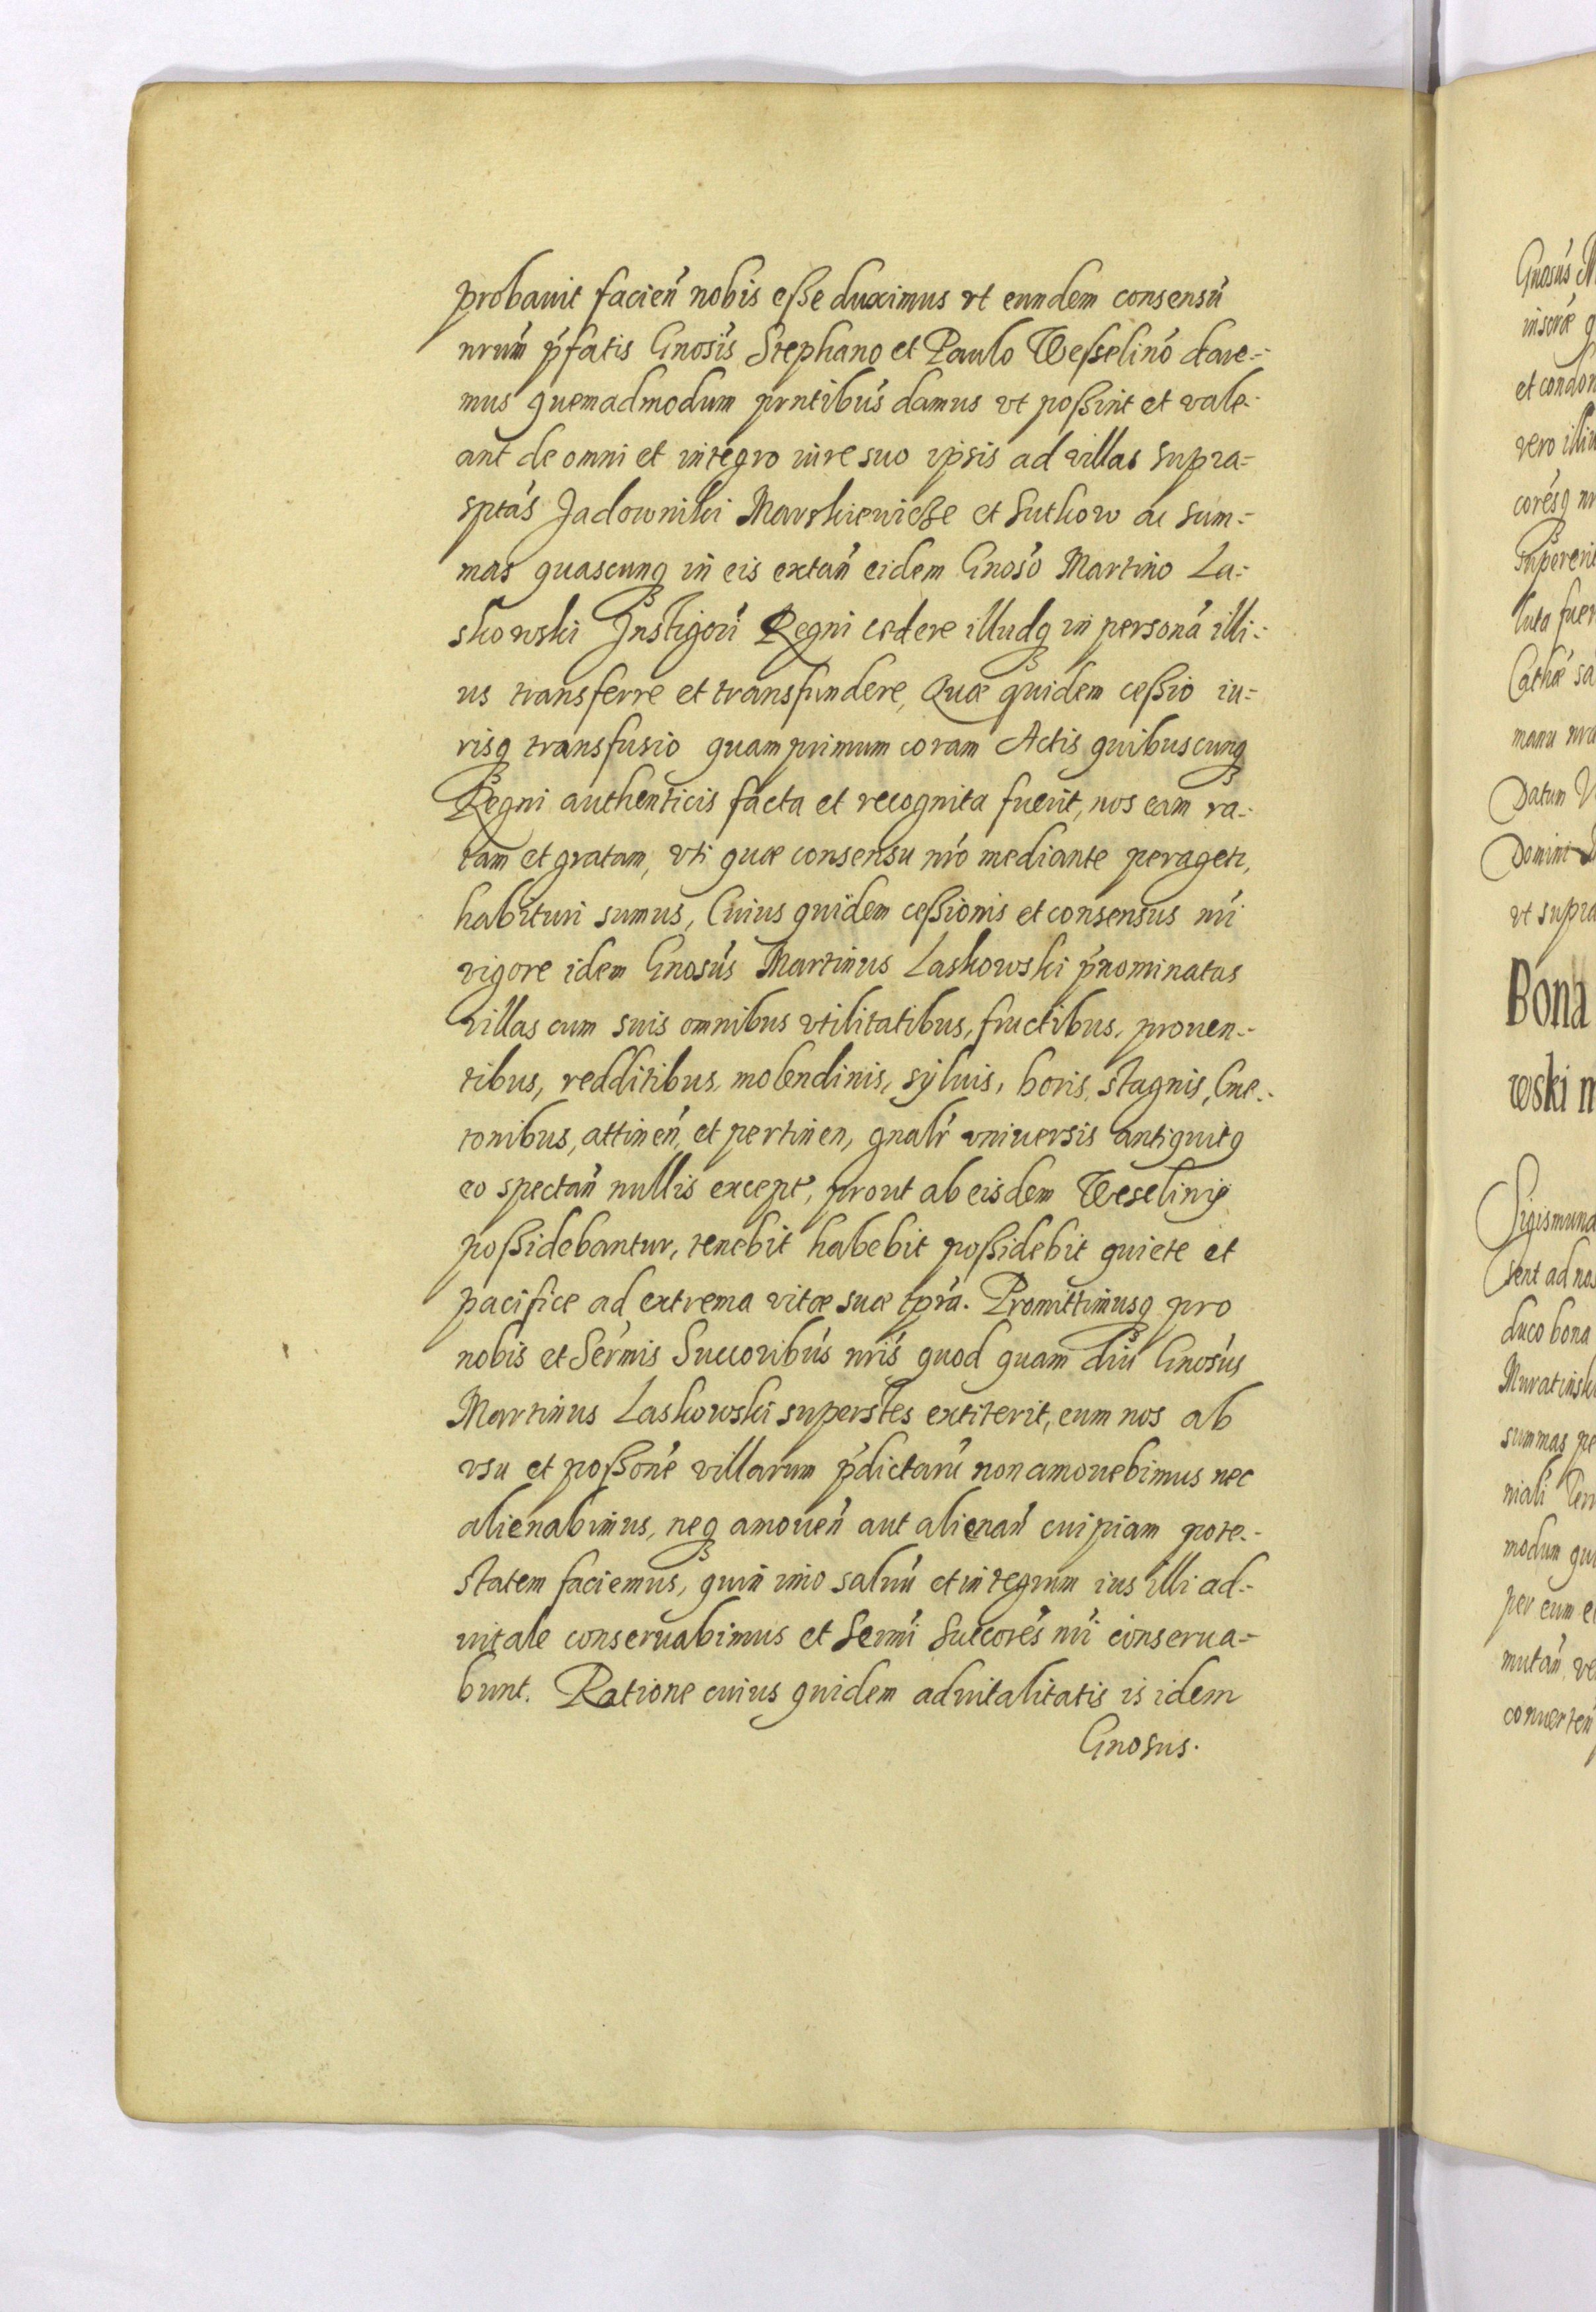 probauit facień nobis eße duximus vt eundem consensū
nrūm p̄fatis Gnosis Stephano et Paulo Weßelino dare-
mus quemadmodum prntibus damus vt poßint et vale-
ant de omni et integro iure suo ipsis ad villas supra-
sptas Jadowniki Marskiewicze et Sutkow ac sum-
mas quascunq in eis extań eidem Gnoso Martino La-
skowski Instigori Regni cedere illudq in personā illi-
us transferre et transfundere, Quæ quidem ceßio iu-
risq transfusio quamprimum coram Actis quibuscunq
Regni authenticis facta et recognita fuerit, nos eam ra-
tam et gratam, vti quæ consensu nro mediante peragetr,
habituri sumus, Cuius quidem ceßionis et consensus nri
vigore idem Gnosus Martinus Laskowski p̄nominatas
villas cum suis omnibus vtilitatibus, fructibus, prouen-
tibus, redditibus, molendinis, syluis, boris, stagnis, Cme-
tonibus, attineń, et pertinen, gnalr vniuersis antiquitq
eo spectań nullis except, prout ab eisdem Weselinis
poßidebantur, tenebit habebit poßidebit quiete et
pacifice ad extrema vitæ suæ tpra. Promittimusq pro
nobis et Sermis Succoribus nris quod quam diu Gnosus
Martinus Laskowski superstes extiterit, eum nos ab
vsu et poßone villarum p̄dictarū non amouebimus nec
alienabimus, neq amoueń aut alienań cuipiam pote-
statem faciemus, quin imo saluū et integrum ius illi ad-
uitale conseruabimus et Sermi Succores nri conserua-
bunt. Ratione cuius quidem aduitalitatis is idem
Gnosus.
Gnosus
et condon
vero illiu
manu nra
Datum
Domini
vt supra
Bona
wski m
Sigismund
sent ad nos
duco bona
Muratinski
summas pe
modum qu
per eum e
mutań ve
conuerteń